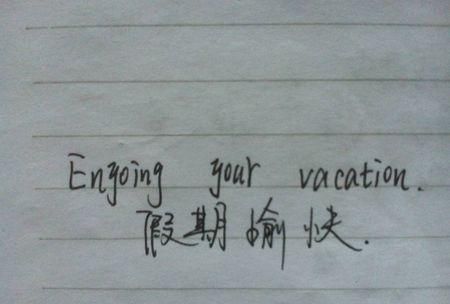 Engoing your vacation.
假期愉快.